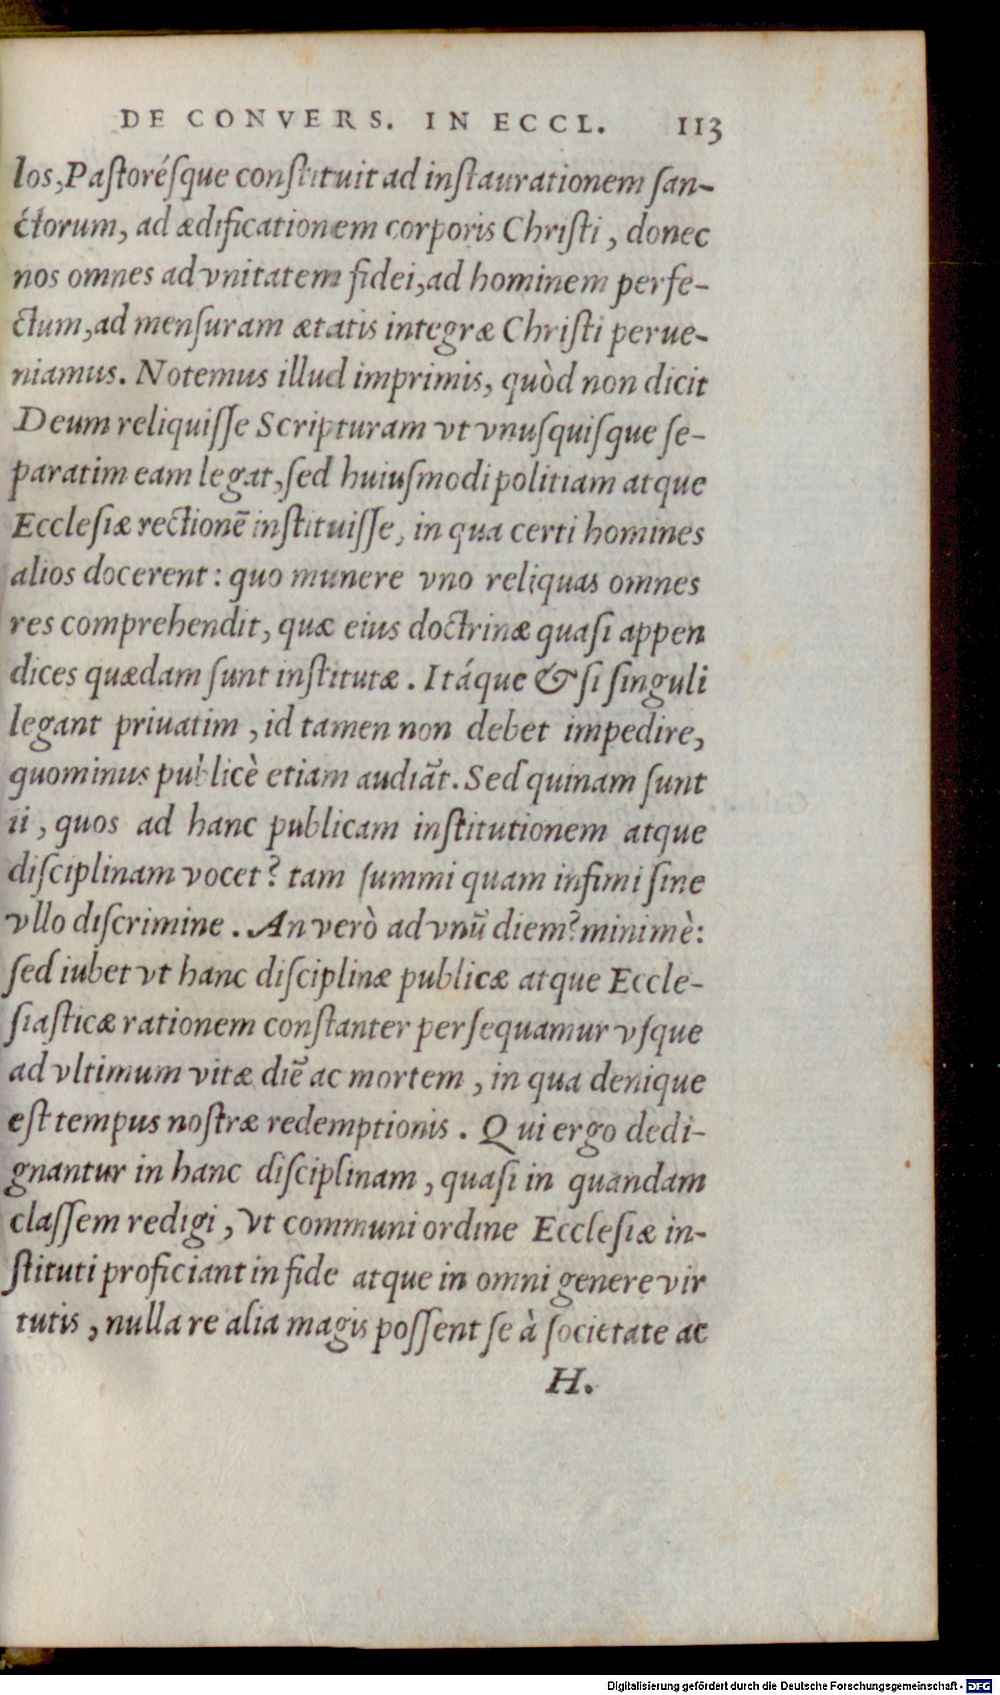 DE CONVERS. IN ECCL. 113
los, Pastorésque constituit ad instaurationem san-
ctorum, ad ædificationem corporis Christi, donec
nos omnes ad vnitatem fidei, ad hominem perfe-
ctum, ad mensuram ætatis integræ Christi perue-
niamus. Notemus illud imprimis, quòd non dicit
Deum reliquisse Scripturam vt vnusquisque se-
paratim eam legat, sed huiusmodi politiam atque
Ecclesiæ rectionē instituisse, in qua certi homines
alios docerent: quo munere vno reliquas omnes
res comprehendit, quæ eius doctrinæ quasi appen
dices quædam sunt institutæ. Itáque & si singuli
legant priuatim, id tamen non debet impedire,
quominus publicè etiam audiāt. Sed quinam sunt
ii, quos ad hanc publicam institutionem atque
disciplinam vocet? tam summi quam infimi sine
vllo discrimine. An verò ad vnū diem? minimè:
sed iubet vt hanc disciplinæ publicæ atque Eccle-
siasticæ rationem constanter persequamur vsque
ad vltimum vitæ diē ac mortem, in qua denique
est tempus nostræ redemptionis. Qui ergo dedi-
gnantur in hanc disciplinam, quasi in quandam
classem redigi, vt communi ordine Ecclesiæ in-
stituti proficiant in fide atque in omni genere vir
tutis, nulla re alia magis possent se à societate ac
H.
Digitalisierung gefördert durch die Deutsche Forschungsgemeinschaft - DFG